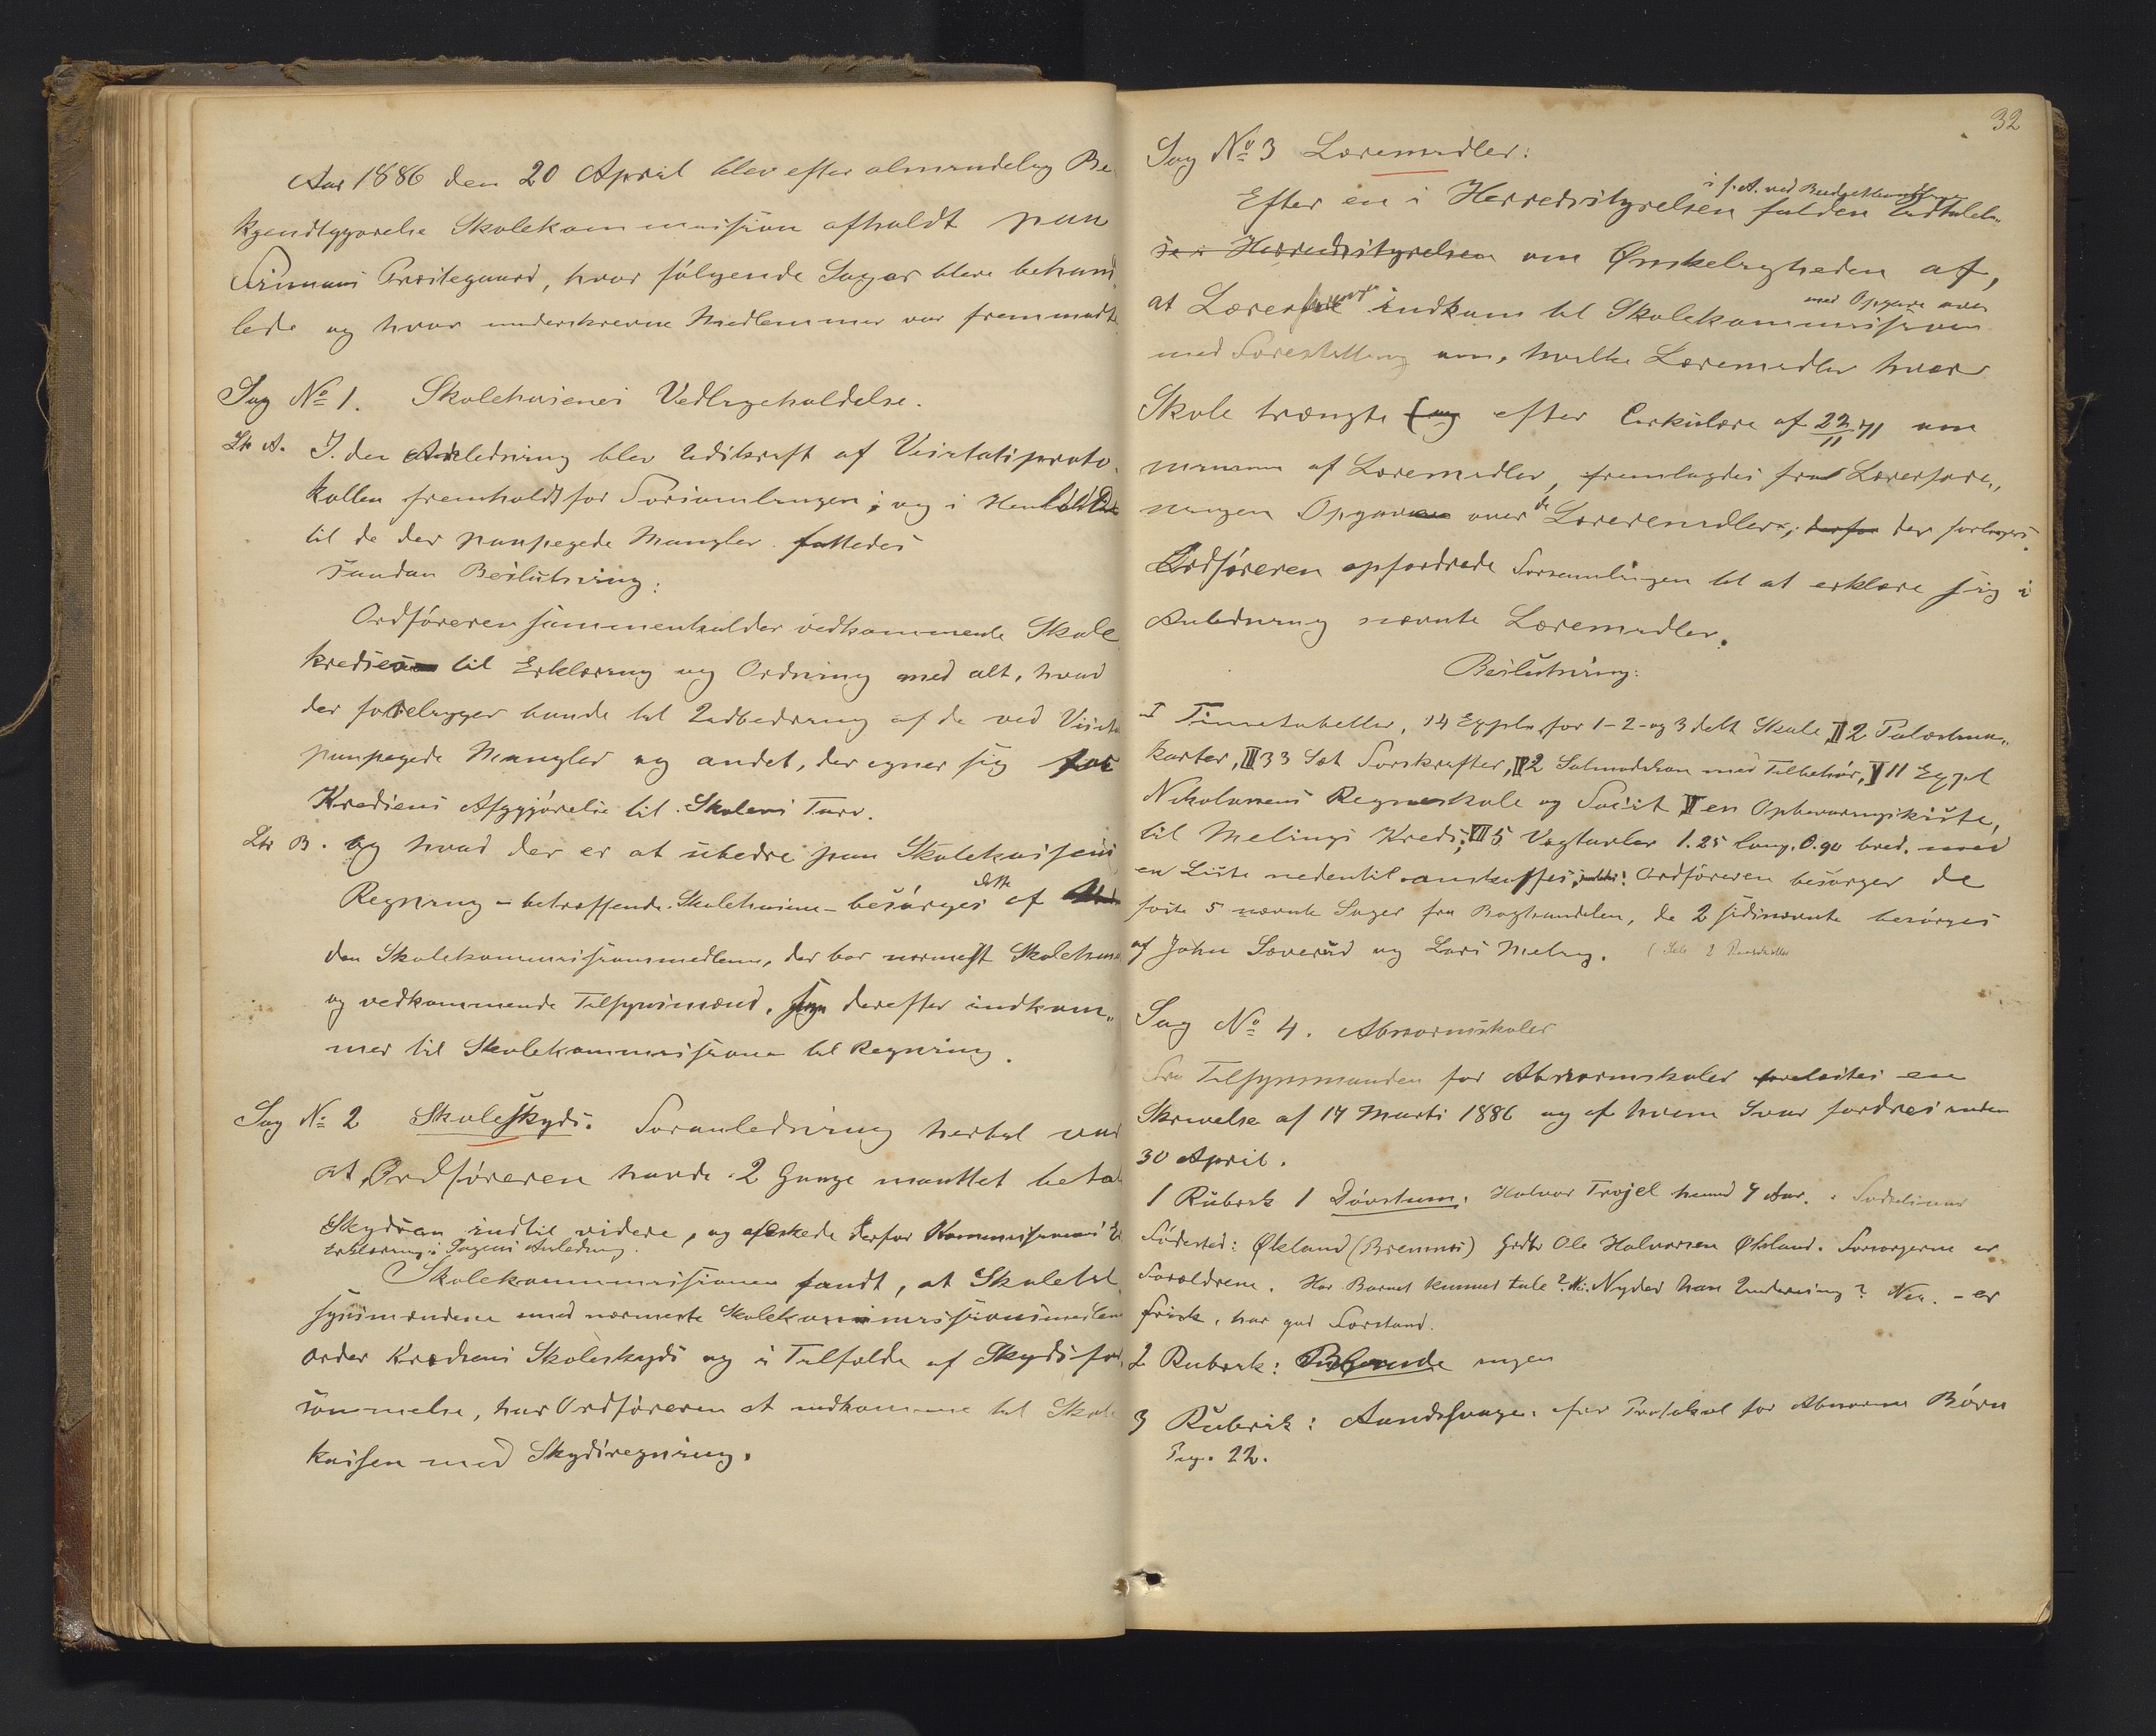 Aar 1886 den 20 April blev efter almindelig Be
kjendtgjørelse Skolekommission afholdt paa
Finnaas Præstegaard, hvor følgende Sager bleve behand
lede og hvor underskrevne Medlemmer var fremmødt
Sag No 1. Skolehusenes Vedligeholdelse.
Ltr A. I den Anledning blev Udskrift af Visitatsproto
kollen fremholdt for Forsamlingen; og i Henhold
til de der paapegede Mangler fattedes
saadan Beslutning:
Ordføreren sammenkalder vedkommende Skole
kredse til Erklæring og Ordning med alt, hvad
der foreligger baade til Udbedring af de ved Visita
paapegede Mangler og andet, der egner sig for
Kredsens Afgjørelse til Skolens Tarv.
Ltr B. og hvad der er at ubedre paa Skolekassens
Regning - betræffende Skolehusene - besørges dette af
den Skolekommissionsmedlem, der bor nærmest Skolehuse
og vedkommende Tilsynsmænd, derefter indkom„
mer til Skolekommissionen til Regning.
Sag No 2 Skoleskyds. Foranledning hertil var
at Ordføreren havde 2 Gange maattet betal
Skydsen indtil videre, og æskede derfor Kommissionens
Erklæring i Sagens Anledning.
Skolekommissionen fandt, at Skoletil
synsmændene med nærmeste Skolekommissionsmedlem
order Kredsens Skoleskyds og i Tilfælde af Skydsfor
sømmelse, har Ordføreren at indkomme til Skole
kassen med Skydsregning.
32
Sag No 3 Læremidler:
i f. A. ved Budget
Efter en i Herredsstyrelsen falden Udtalel„
se i Herredsstyrelsen om Ønskeligheden af,
med Opgave over
at Lærerne indkom til Skolekommissionen
med Forestilling om, hvilke Læremidler hver
Skole trængte (og efter Cirkulære af 22/11 71 om
af Læremidler, fremlagdes fra Lærerfore„
ningen Opgave over de Læreremidler, derfor der forlanges.
Ordføreren opfordrede Forsamlingen til at erklære sig i
Anledning nævnte Læremidler.
Beslutning:
I Timetabeller, 14 Expl. for 1-2- og 3 delt Skole, II 2 Palæstina„
karter, III 33 Sæt Forskrifter, IV 2 Salmodikon med Tilbehør, V 11 Expl
Nikolaisens Regneskole og Facit VI en Opbevaringskiste,
til Melings Kreds, VII 5 Vægtavler 1.25 lang, 0.90 bred. med
en Liste nedentil anskaffes; Ordføreren besørger de
første 5 nævnte Sager fra Boghandelen, de 2 sidstnævnte besørges
af John Sæverud og Lars Meling.
Sag No 4. Abnormskoler
Fra Tilsynsmanden for Abnormskoler forelæstes en
Skrivelse af 14 Marts 1886 og af hvem Svar fordres inden
30 April.
1 Rubrik 1 Døvstum. Halvor Trojel 4 Aar.
Fødested: Økland (Bremnes) Gdbr Ole Halvorsen Økland. Forsørgerne er
Forældrene. Har Barnet kunnet tale? Nei. Nyder han Undervisning? Nei. - er
frisk, har god Forstand.
2 Rubrik: Blinde ingen
3 Rubrik: Aandssvage. Protokol for Abnorme Børn
Pag. 22.